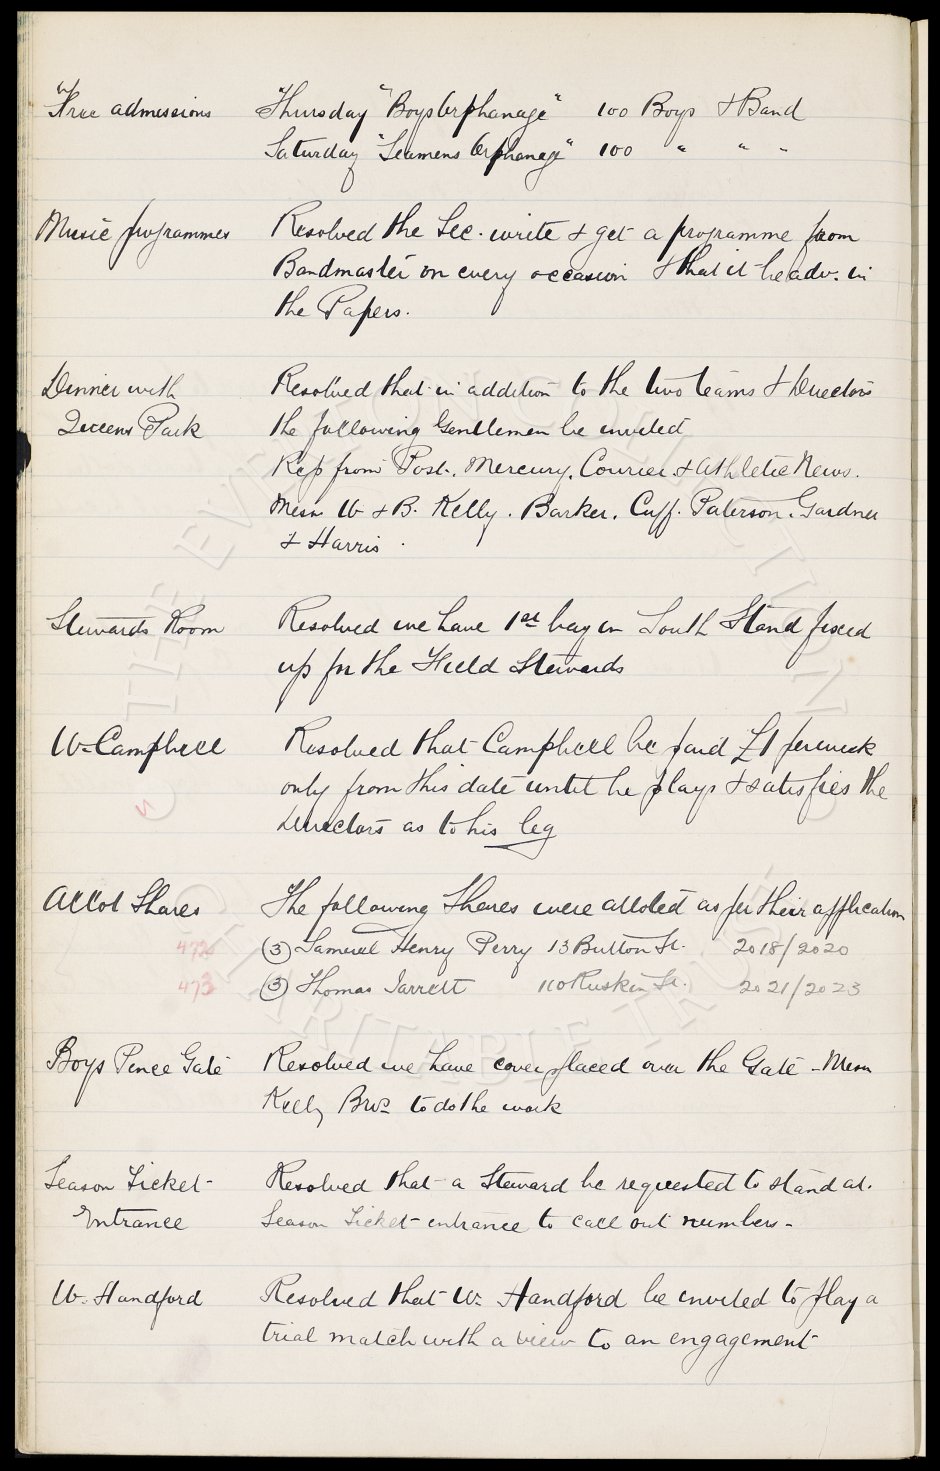 "Free admissions Thursday "Boys Orphanage" 100 Boys & Band
Saturday "Seamens Orphanage" 100 " " "
Music programmes Resolved the Sec. write & get a programme from
Bandmaster on every occasion & that it be adv. in
the Papers.
Dinner with Resolved that in addition to the two teams & Directors
Queens Park the following Gentlemen be invited
Rep from Post, Mercury, Courier & Athletic News.
Messrs W & B. Kelly. Barker. Cuff. Paterson. Gardner
& Harris.
Stewards Room Resolved we have 1st bay in South Stand fixed
up for the Field Stewards
W. Campbell Resolved that Campbell be paid £1 per week
only from this date until he plays & satisfies the
Directors as to his leg
Allot Shares The following Shares were alloted as per their application
472 (3) Samuel Henry Perry 13 Button St. 2018/2020
473 (3) Thomas Jarrett 110 Ruskin St. 2021/2023
Boys Pence Gate Resolved we have cover placed over the Gate - Messrs
Kelly Bros to do the work
Season Ticket- Resolved that a Steward be requested to stand at.
Entrance Season Ticket entrance to call out numbers -
W. Handford Resolved that W. Handford be invited to play a
trial match with a view to an engagement
THE EVERTON COLLECTION
CHARITABLE TRUST